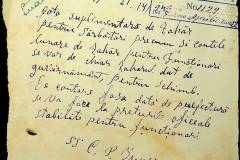 21.14
No 1122
Aprilie
Cota suplimentară de Zahăr
pentru sărbători precum și cotele
lunare de zahăr pentru funcționari
se var de chiar zahărul dat de
guvernământ, pentru schimb.
Se contare fasa dată de prefectură
se va face la prețurile oficiale
stabilite pentru funcționari
ss C. P.